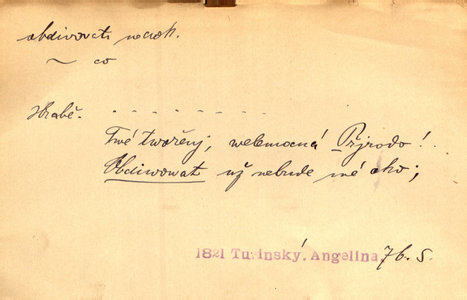 obdivovati nedok.
~ co
Hrabě. - - - - - - - -
Twé twořeny, welemocná Přjrodo!
Obdiwowat už nebude mé oko;
1821 Turinský, Angelina 76. s.